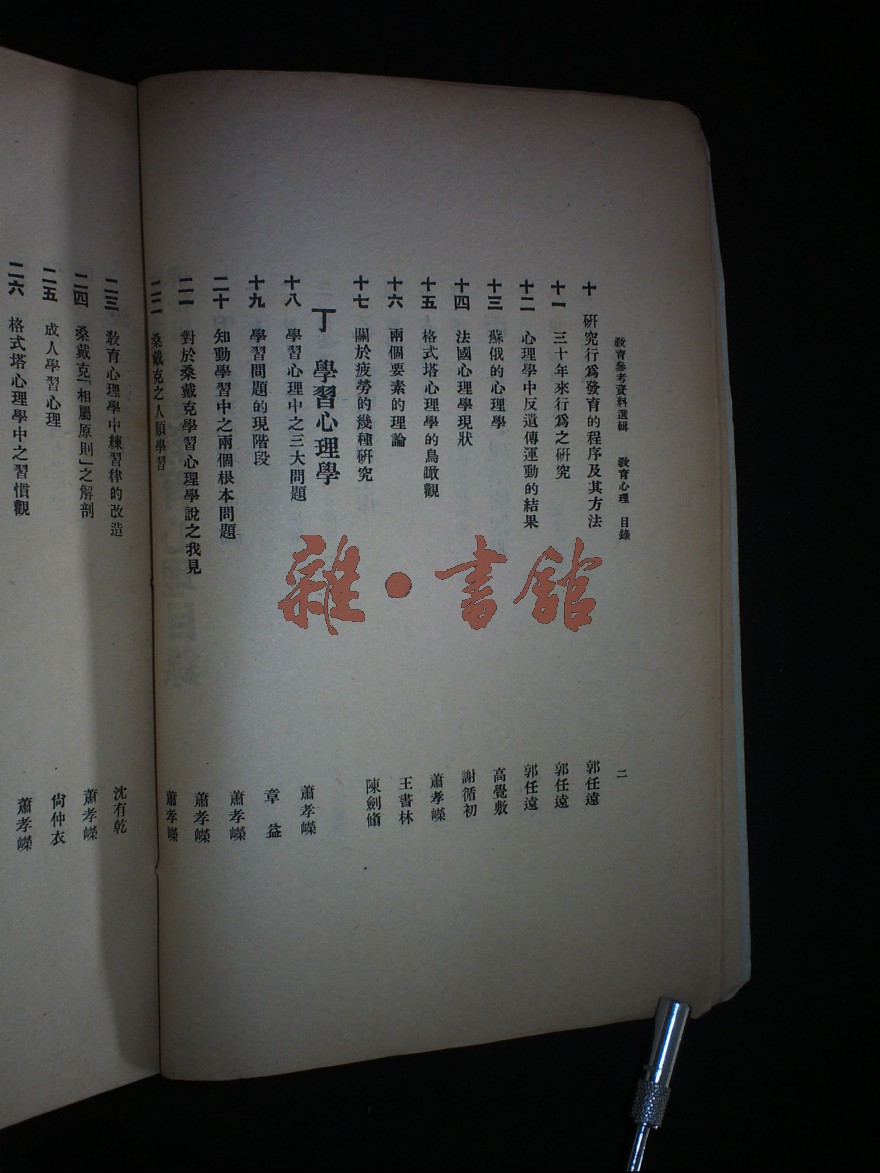 教育參考資料選輯 教育心理 目錄 二
十 研究行爲發育的程序及其方法 郭任遠
十一 三十年來行爲之研究 郭任遠
十二 心理學中反遺傳運動的結果 郭任遠
十三 蘇俄的心理學 高覺敷
十四 法國心理學現狀 謝循初
十五 格式塔心理學的鳥瞰觀 蕭孝嶸
十六 兩個要素的理論 王書林
十七 關於疲勞的幾種研究 陳劍脩
丁 學習心理學
十八 學習心理中之三大問題 蕭孝嶸
十九 學習問題的現階段 章益
二十 知動學習中之兩個根本問題 蕭孝嶸
二一 對於桑戴克學習心理學說之我見 蕭孝嶸
二二 桑戴克之人類學習 蕭孝嶸
二三 教育心理學中練習律的改造 沈有乾
二四 桑戴克「相屬原則」之解剖 蕭孝嶸
二五 成人學習心理 尙仲衣
二六 格式塔心理學中之習慣觀 蕭孝嶸
雜·書館